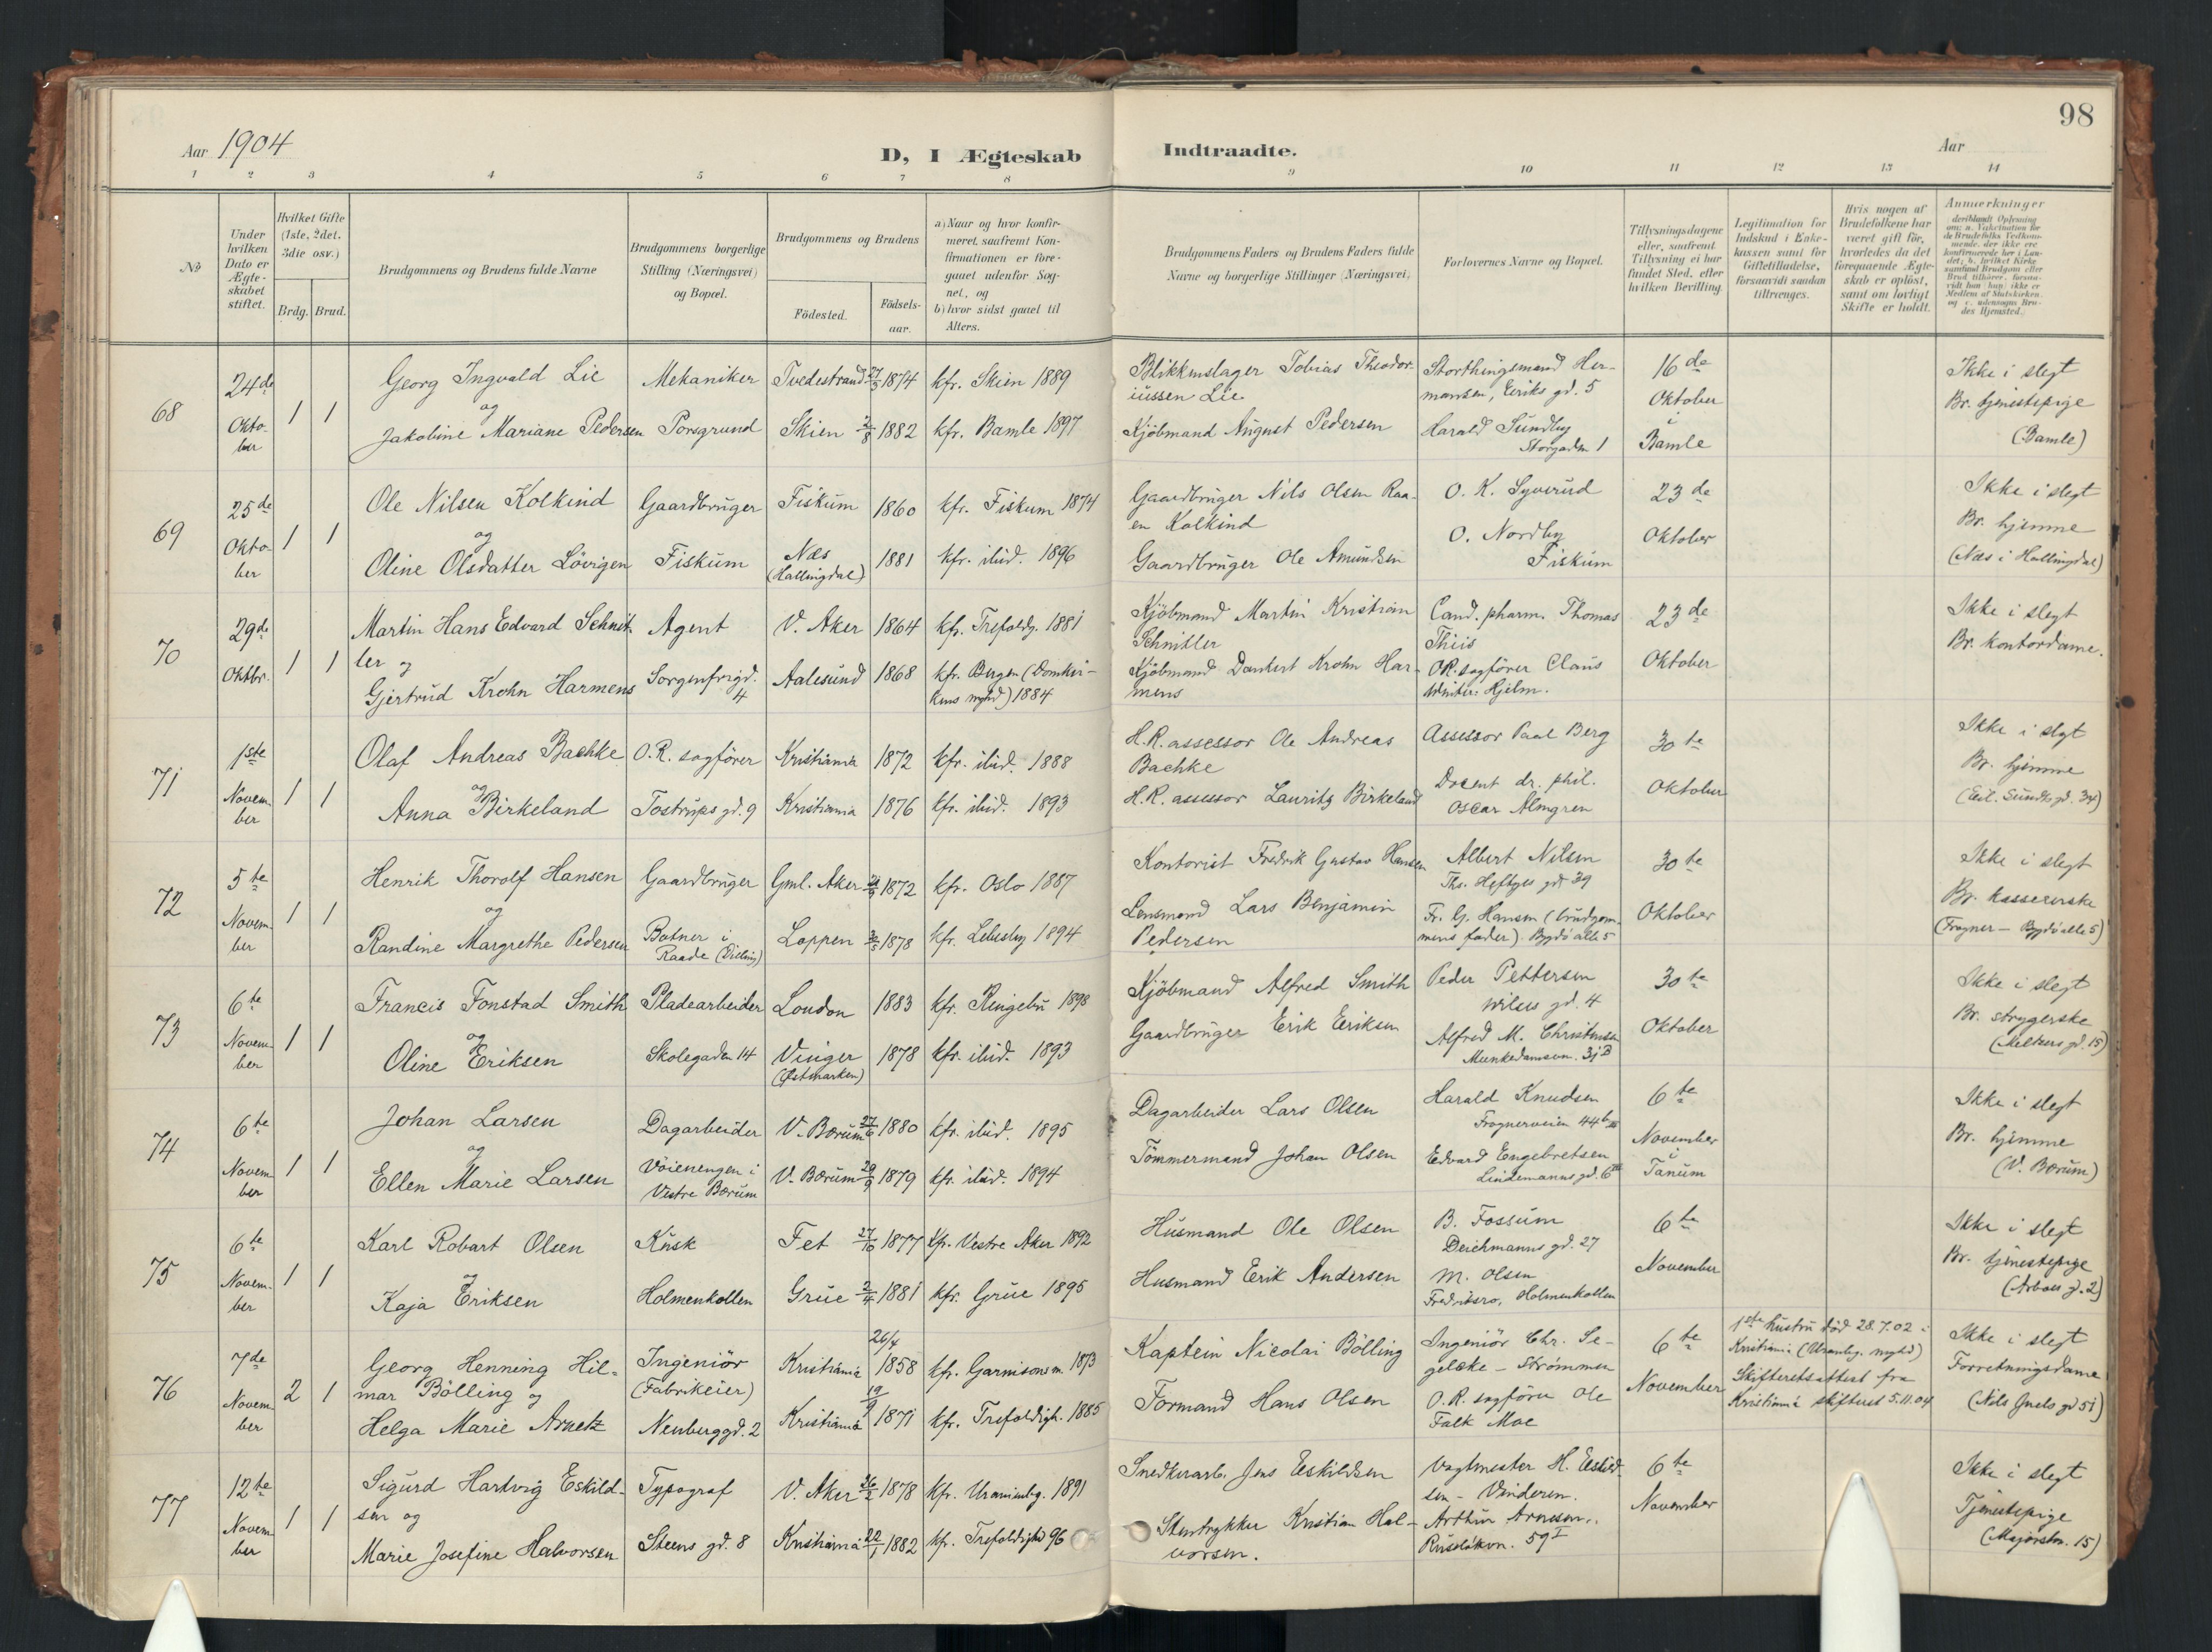 98
Aar 1904
D, I Ægteskab Indtraadte.
Aar
1 2 3 4 5 6 7 8 9 10 11 12 13 14
No
Under hvilken Dato er Ægteskabet stiftet.
Hvilket Gifte (1ste, 2det. 3die osv.)
Brdg. Brud.
Brudgommens og Brudens fulde Navne
Brudgommens borgerlige Stilling (Næringsvei) og Bopæl.
Brudgommens og Brudens
Födested.
Födsels-aar.
a) Naar og hvor konfir-
meret, saafremt Kon-
firmationen er fore-
gaaet udenfor Sog-
net, og
b) hvor sidst gaaet til
Alters.
Brudgommens Faders og Brudens Faders fulde
Navne og borgerlige Stillinger (Næringsvei)
Forlovernes Navne og Bopæl.
Tillysningsdagene
eller, saafremt
Tillysning ei har
fundet Sted, efter
hvilken Bevilling.
Legitimation for
Indskud i Enke-
kassen samt for
Giftetilladelse,
forsaavidt saadan
tiltrænges.
Hvis nogen af
Brudefolkene har
været gift för,
hvorledes da det
foregaaende Ægte-
skab er oplöst,
samt om lovligt
Skifte er holdt.
Anmærkninger
68
24de Okto-ber
1 1
Georg Ingvald Lie
og
Jakobine Mariane Pedersen
Mekaniker
Porsgrund
Tvedestrand 27/5 1874
Skien 2/8 1882
kfr. Skien 1889
kfr. Bamle 1897
Blikkenslager Tobias Theodor-
iussen Lie
Kjöbmand August Pedersen
Storthingsmand Her-
mansen, Eiriks gd. 5
Harald Sundby
Storgaden 1
16de
Oktober
i
Bamle
Ikke i slegt
Br. tjenestepige
(Bamle)
69
25de Okto-ber
1 1
Ole Nilsen Kolkind
og
Oline Olsdatter Lövigen
Gaardbruger
Fiskum
Fiskum 1860
Næs (Hallingdal) 1881
kfr. Fiskum 1874
kfr. ibid. 1896
Gaardbruger Nils Olsen Raa-
en Kolkind
Gaardbruger Ole Amundsen
O. K. Syverud
O. Nordby
Fiskum
23de
Oktober
Ikke i slegt
Br. hjemme
(Næs i Hallingdal)
70
29de Oktbr.
1 1
Martin Hans Edvard Schnit-
ler og
Gjertrud Krohn Harmens
Agent
Sorgenfrigd. 4
V. Aker 1864
Aalesund 1868
kfr. Trefoldg. 1881
kfr. Bergen (Domkir-
kens mghd) 1884
Kjöbmand Martin Kristian
Schnitler
Kjöbmand Dankert Krohn Har-
mens
Cand. pharm. Thomas
Thiis
OR.sagförer Claus
Winter-Hjelm.
23de
Oktober
Ikke i slegt
Br. kontordame.
71
1ste Novem-ber
1 1
Olaf Andreas Bachke
og
Anna Birkeland
O.R. sagförer
Tostrups gd. 9
Kristiania 1872
Kristiania 1876
kfr. ibid. 1888
kfr. ibid. 1893
H.R. assessor Ole Andreas
Bachke
H.R. assessor Lauritz Birkeland
Assessor Paal Berg
Docent dr. phil.
Oscar Almgren
30te
Oktober
Ikke i slegt
Br. hjemme
(Eil. Sundts gd. 34)
72
5te Novem-ber
1 1
Henrik Thorolf Hansen
og
Randine Margrethe Pedersen
Gaardbruger
Botner i
Raade
Gml. Aker 1872
Loppen 1878
kfr. Oslo 1887
kfr. Lebesby 1894
Kontorist Fredrik Gustav Hansen
Lensmand Lars Benjamin
Pedersen
Albert Nilsen
Ths. Heftyes gd. 39
Fr. G. Hansen (brudgom-
mens fader). Bygdö allé 5
30te
Oktober
Ikke i slegt
Br. kassererske
(Frogner - Bygdö allé 5)
73
6te Novem-ber
1 1
Francis Fonstad Smith
og
Oline Eriksen
Pladearbeider
Skolegaden 14
London 1883
Vinger (Østmarken) 1878
kfr. Ringebu 1898
kfr. ibid. 1893
Kjöbmand Alfred Smith
Gaardbruger Erik Eriksen
Peder Pettersen
Wilses gd. 4
Alfred M. Christensen
Munkedamsvn. 31 B
30te
Oktober
Ikke i slegt
Br. strygerske
(Meltzers gd. 15)
74
6te Novem-ber
1 1
Johan Larsen
og
Ellen Marie Larsen
Dagarbeider
Vöienengen i
Vestre Bærum
V. Bærum 27/6 1880
V. Bærum 29/9 1879
kfr. ibid. 1895
kfr. ibid. 1894
Dagarbeider Lars Olsen
Tömmermand Johan Olsen
Harald Knudsen
Frognerveien 44 b III
Edvard Engebretsen
Lindemanns gd. 6
6te
November
i
Tanum
Ikke i slegt
Br. hjemme
(V. Bærum)
75
6te Novem-ber
1 1
Karl Robart Olsen
og
Kaja Eriksen
Kusk
Holmenkollen
Fet 27/10 1877
Grue 2/4 1881
kfr. Vestre Aker 1892
kfr. Grue 1895
Husmand Ole Olsen
Husmand Erik Andersen
B. Fossum
Deichmanns gd. 27
M. Olsen
Fredriksro, Holmenkollen
6te
November
Ikke i slegt
Br. tjenestepige
(Arboes gd. 2)
76
7de Novem-ber
2 1
Georg Henning Hil-
mar Bölling og
Helga Marie Arnetz
Ingeniör
(Fabrikeier)
Neuberggd. 2
Kristiania 26/4 1858
Kristiania 19/9 1871
kfr. Garnisonsm. 1873
kfr. Trefoldigh. 1885
Kaptein Nicolai Bölling
Formand Hans Olsen
Ingeniör Chr. Se-
gelcke - Strömmen
O.R. sagförer Ole
Falk Moe
6te
November
1ste hustru död 28.7.02 i
Kristiania (Uranbg. mghd)
Skifteretsattest fra
Kristiania skifteret 5.11.04
Ikke i slegt
Forretningsdame
(Nils Juels gd 51)
77
12te Novem-ber
1 1
Sigurd Hartvig Eskild-
sen og
Marie Josefine Halvorsen
Typograf
Steens gd. 8
V. Aker 26/2 1878
Kristiania 22/1 1882
kfr. Uranienbg. 1891
kfr. Trefoldighd 96
Snedkerarb. Jens Eskildsen
Stentrykker Kristian Hal-
vorsen.
Vagtmester H. Eskild-
sen - Vinderen.
Arthur Arnesen.
Ruselökvn. 59 I
6te
November
Ikke i slegt
Tjenestepige
(Majorstv. 15)